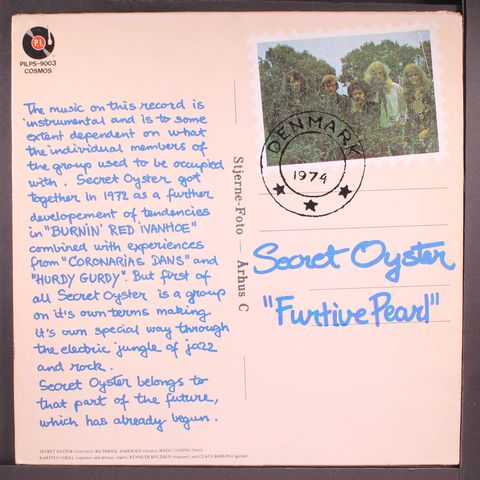 P.I.
PILPS-9003
COSMOS
The music on this record is
instrumental and is to some
extent dependent on what
the individual members of
the group used to be occupied
with. Secret Oyster got
together in 1972 as a further
developement of tendencies
in "BURNIN' RED IVANHOE"
combined with experiences
from "CORONARIAS DANS" and
"HURDY GURDY". But first of
all Secret Oyster is a group
on it's own terms making
it's own special way through
the electric jungle of jazz
and rock.
Secret Oyster belongs to
that part of the future,
which has already begun.
SECRET OYSTER (from left): BO THRIGE ANDERSEN (drums), MADS VINDING (bass),
KARSTEN VOGEL (soprano and altosax, organ), KENNETH KNUDSEN (el-piano), and CLAUS BOHLING (guitar)
Stjerne-Foto — Århus C
DENMARK
1974
Secret Oyster
"Furtive Pearl"